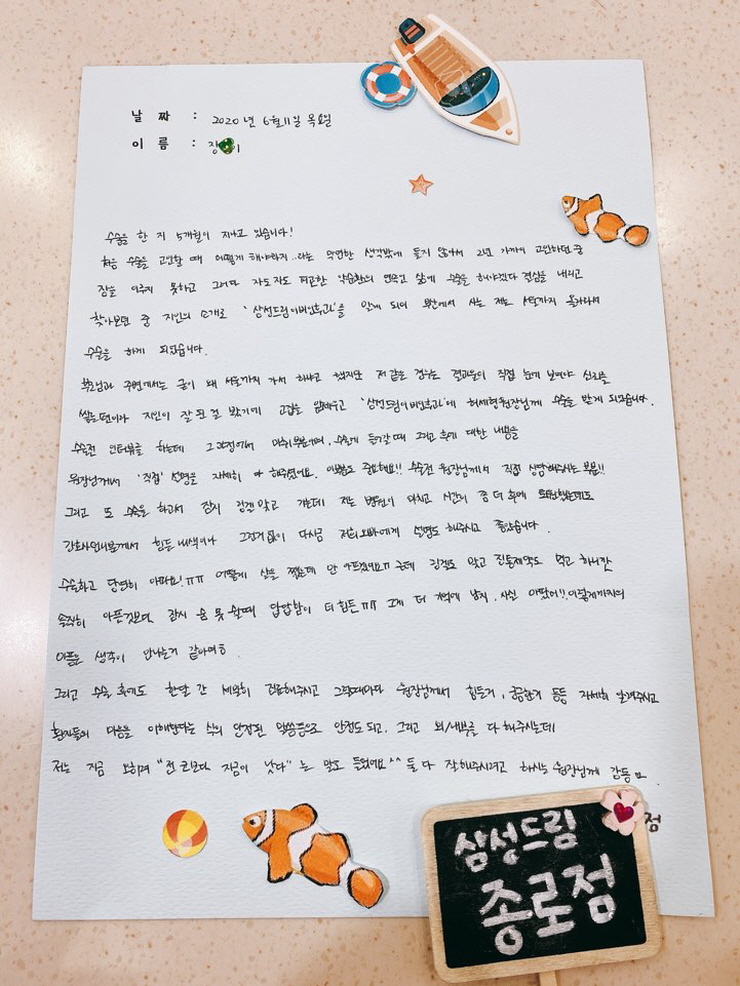 날 짜 : 2020년 6월 11일 목요일
이 름 : 장 이
수술을 한 지 5개월이 지나고 있습니다!
처음 수술을 고민할 때 어떻게 해야하지..라는 막연한 생각밖에 들지 않아서 2년 가까이 고민하던 중
잠을 이루지 못하고 그러다 자도자도 피곤한 악순환의 연속인 삶에 수술을 해야겠다 결심을 내리고
찾아보던 중 지인의 소개로 '삼성드림이비인후과'를 알게 되어 부산에서 사는 저는 서울까지 올라와서
수술을 하게 되었습니다.
부모님과 주변에서는 굳이 왜 서울까지 가서 하냐고 했지만 저 같은 경우는 결과물이 직접 눈에 보여야 신뢰를
쌓는편이라 지인이 잘 된 걸 봤기에 고집을 앞세우고 '삼성드림이비인후과'에 허세형원장님께 수술을 받게 되었습니다.
수술전 인터뷰를 하는데 그 과정에서 마취부분이며, 수술에 들어갈 때 그리고 후에 대한 내용을
원장님께서 '직접' 설명을 자세히 다 해주셨어요. 이부분 중요해요!! 수술전 원장님께서 직접 상담해주시는 부분!!
그리고 또 수술을 하고서 잠시 입원 있고 가는데 저는 병원이 마치고 시간이 좀 더 후에
간호사언니분께서 힘든 내색이나 그런거 없이 다시금 저희 오빠에게 설명도 해주시고 좋았습니다.
수술하고 당연히 아파요!ㅠㅠ 어떻게 살을 쨌는데 안 아프겠어요ㅠ 근데 링겔도 맞고 진통제약도 먹고 하니깐
솔직히 아픈것보다 잠시 숨 못 쉴때 답답함이 더 힘든ㅠㅠ 그게 더 기억에 남지, 사실 아팠어!! 이렇게까지의
아픔은 생각이 안나는거 같아여ㅎ
그리고 수술 후에도 한달 간 세밀히 진료해주시고 그럴때마다 원장님께서 힘든거, 궁금한거 등등 자세히 알려주시고
환자들의 마음을 이해한다는 식의 안정된 말씀등으로 안정도 되고. 그리고 외/내부를 다 해주시는데
저는 지금 오히려 "전 코보다 지금이 낫다"는 말도 들었어요^^ 둘 다 잘해주시려고 하시는 원장님께 감동
점
삼성드림
종로점